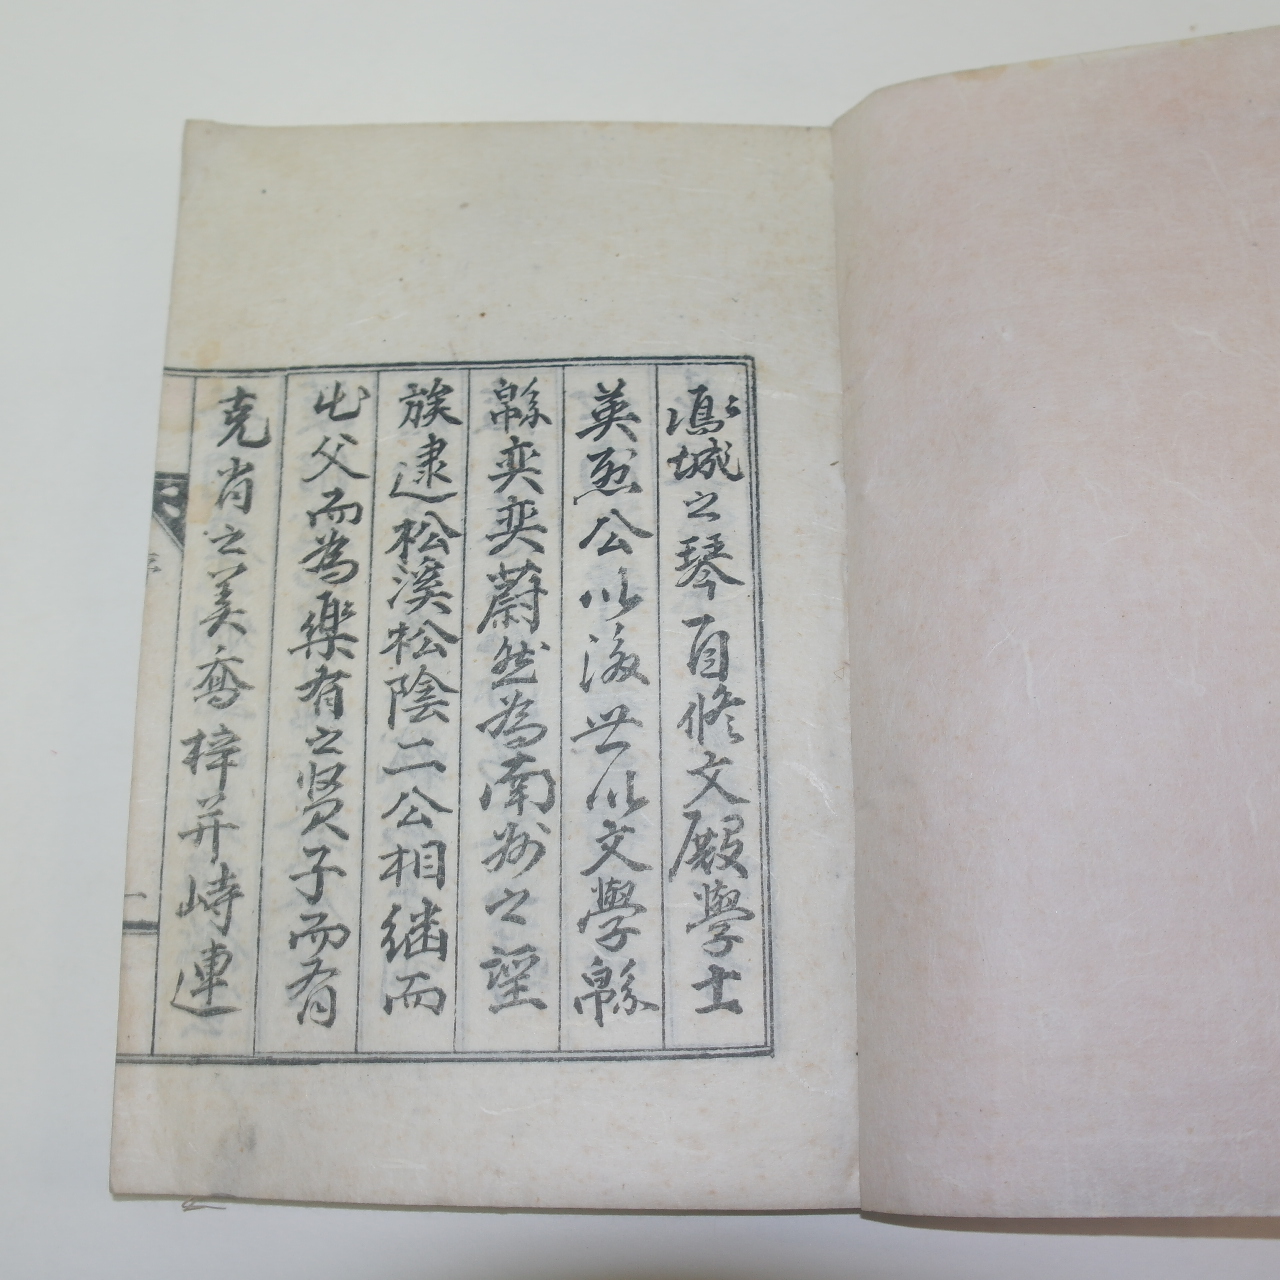 鳳城之琴自修文殿學士
英烈公以後世以文學緜
緜奕奕蔚然為南州之望
族逮松溪松陰二公相繼而
此父而為樂有之贤子而有
克肖之美喬梓并峙連
序